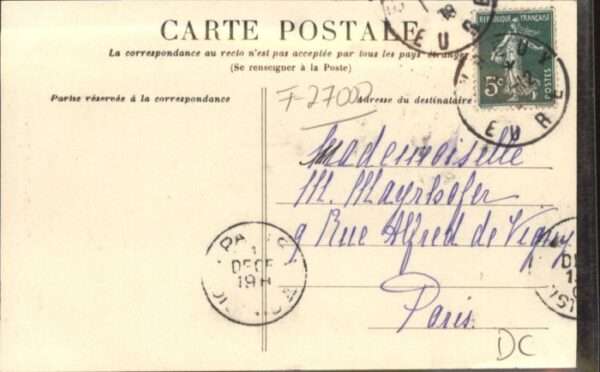 CARTE POSTALE
La correspondance au recto n'est pas acceptée par tous les pays étrangers
(Se renseigner à la Poste)
RÉPUBLIQUE FRANÇAISE
5c
POSTES
EURE
EURE
Partie réservée à la correspondance
F-27000
Adresse du destinataire
Mademoiselle
M. Mayrhofer
9 Rue Alfred de Vigny
Paris
DC